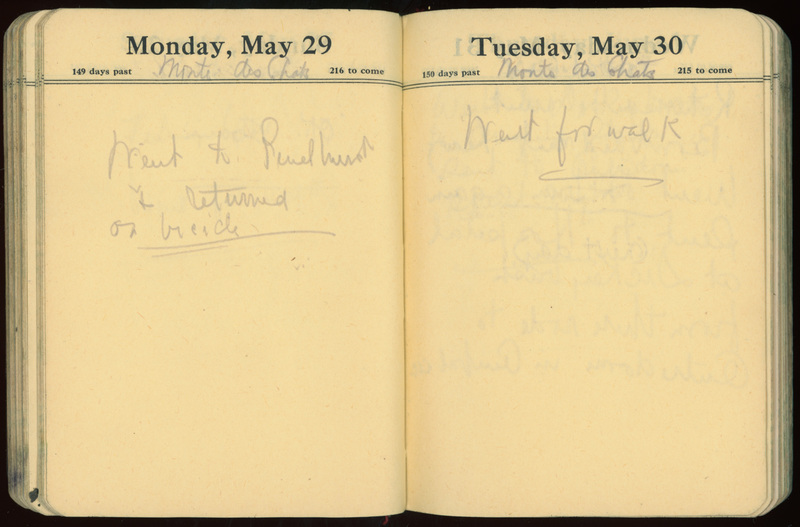 Monday, May 29
149 days past
Monts des Chats
216 to come
Went to
& returned
on bicicle
Tuesday, May 30
150 days past
Monts des Chats
215 to come
Went for walk